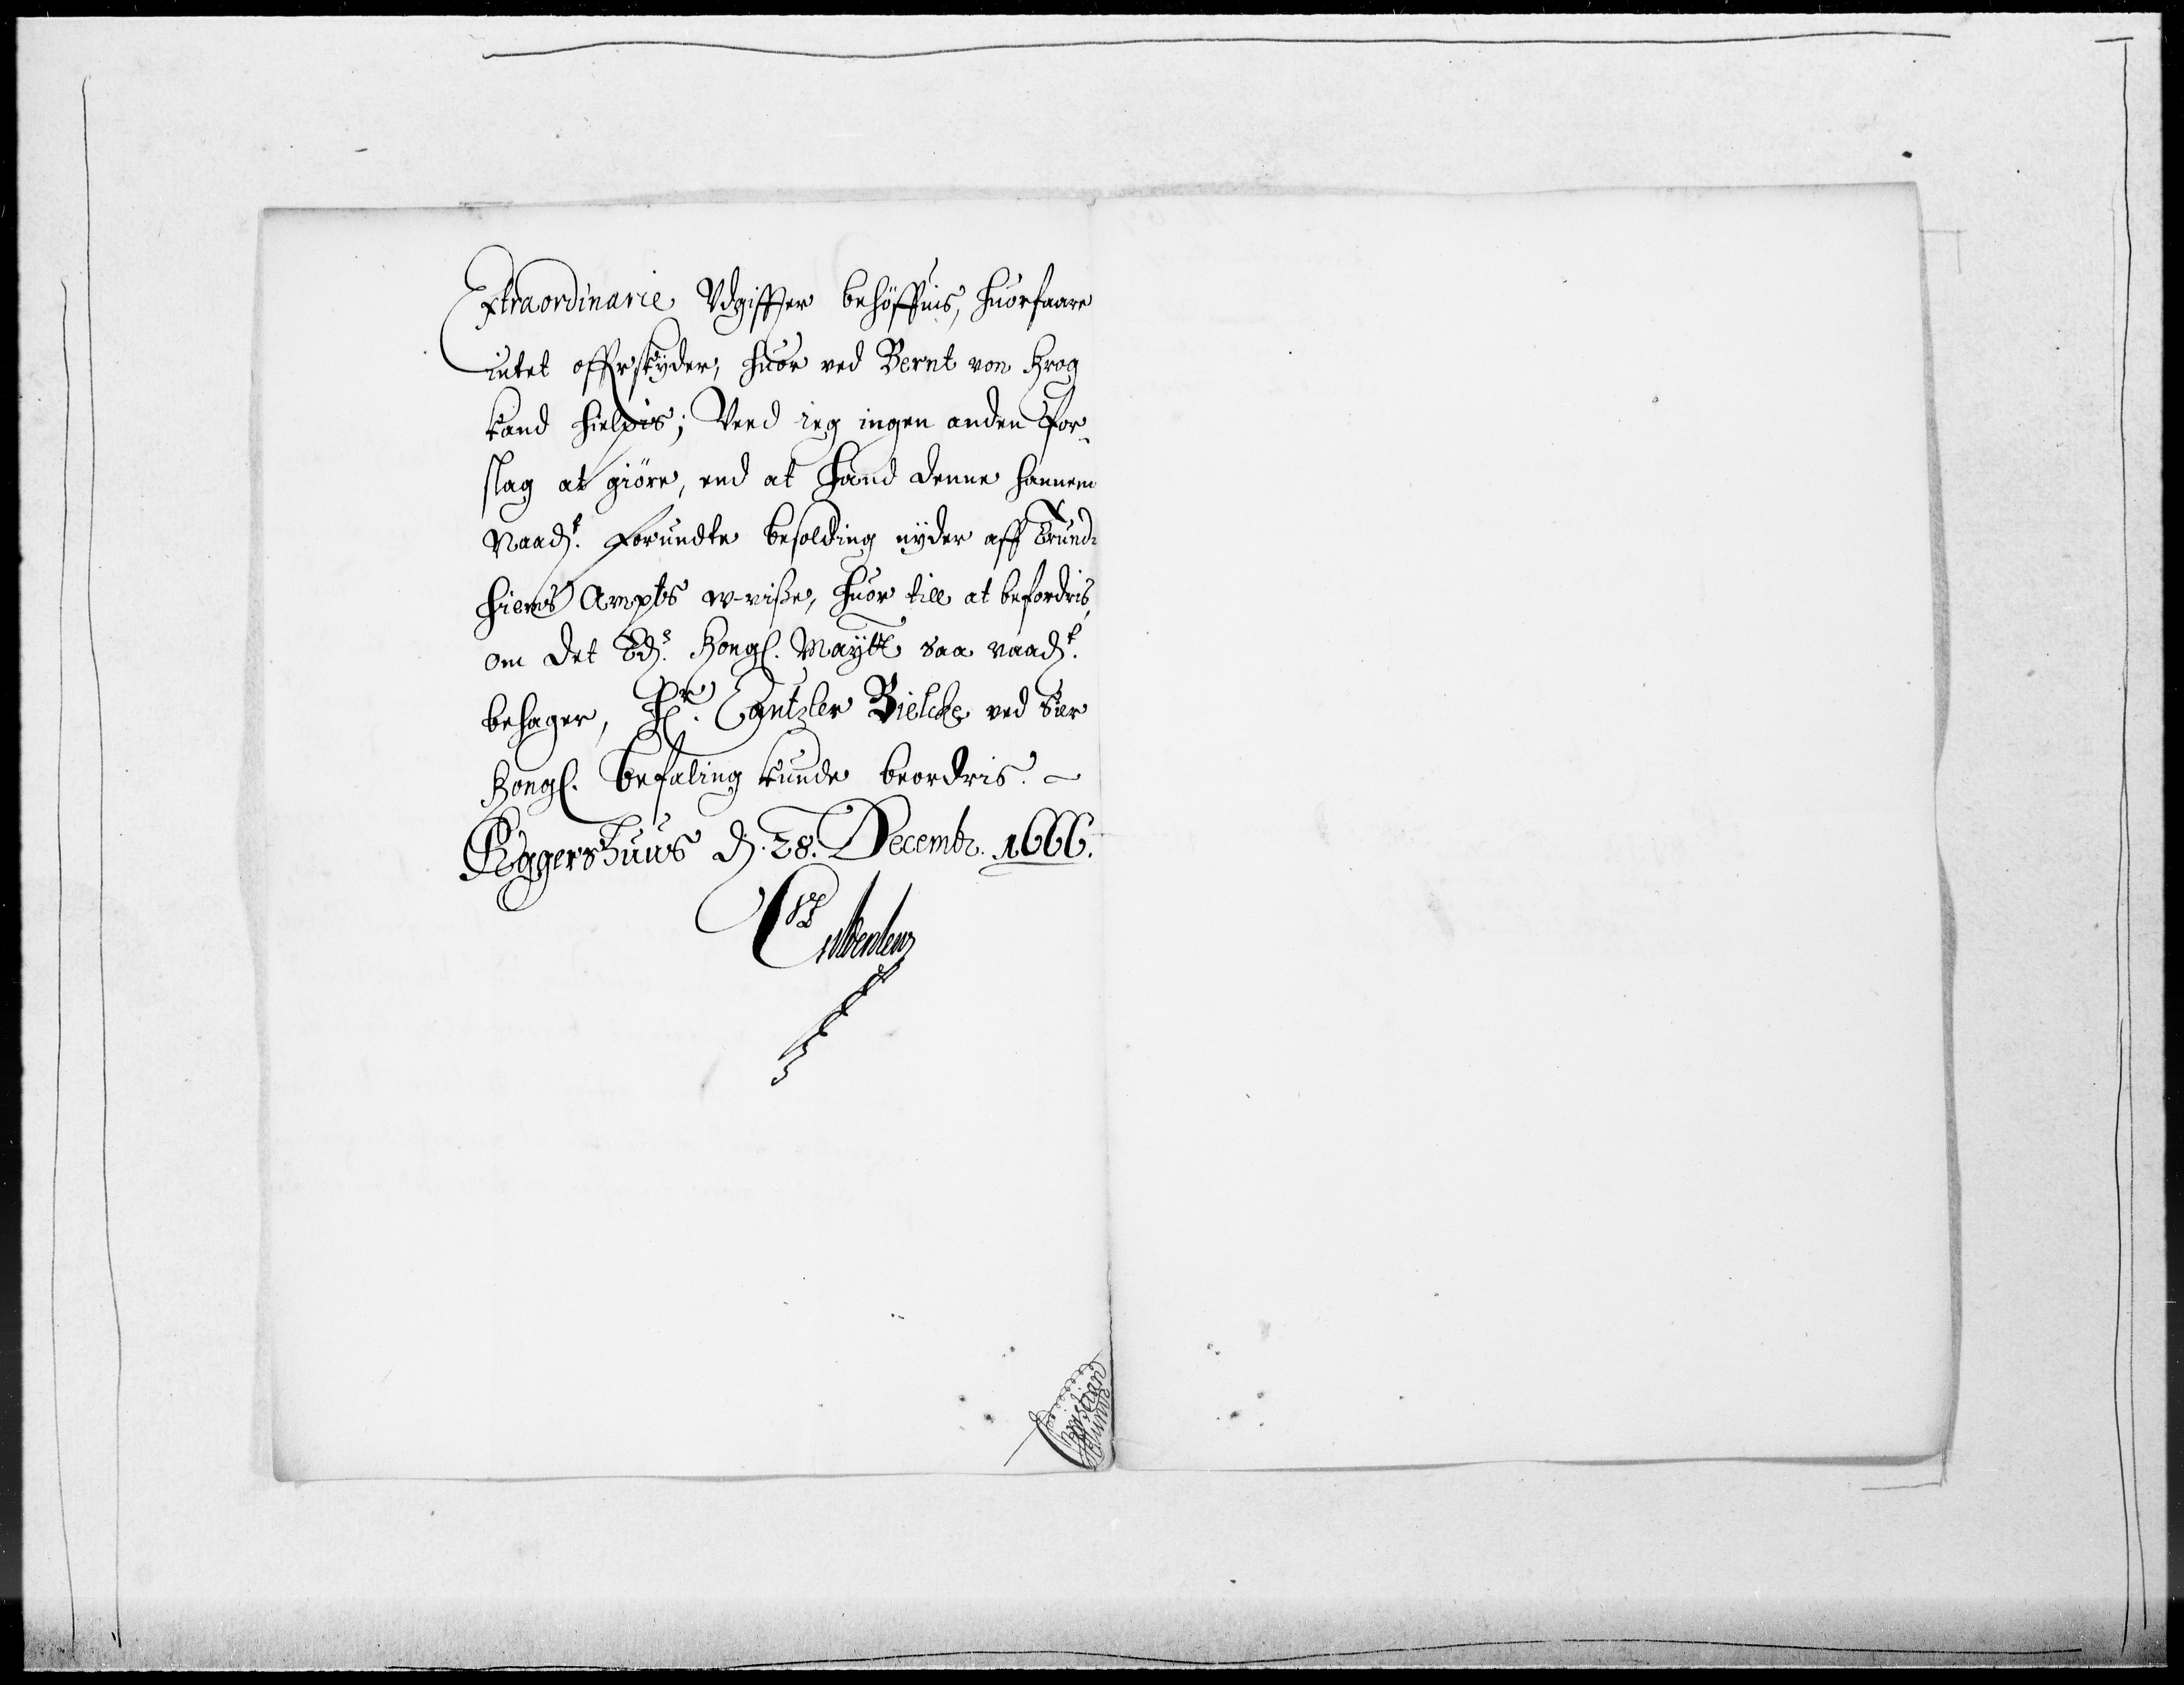 Extraordinarie Vdgiffter behöffuis, huorfaare
intet offrskyder, huor ved Bernt von Krog
kand hielpis; Veed ieg ingen anden for¬
slag at giöre, end at hand denne hannem
Naadst. forundte besolding nyder aff Trund¬
hiems Ampts w-visse, huor till at befordris,
om det Eds. Kongl. Maytt saa naadst.
behager, Hr. Cantzler Bielcke ved Eder
Kongl. befaling kunde beordris.
Aggershuus d. 28. Decemb. 1666.
Gyldenlew
Christian